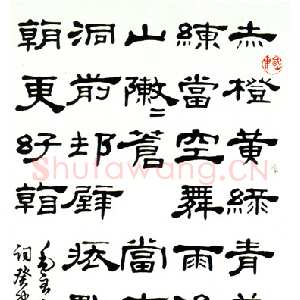 赤橙黄綠青
練當空舞雨
山陣〻蒼 當
洞前邨壁裝點
朝更好看
毛主
詞癸
Shufawang.cn